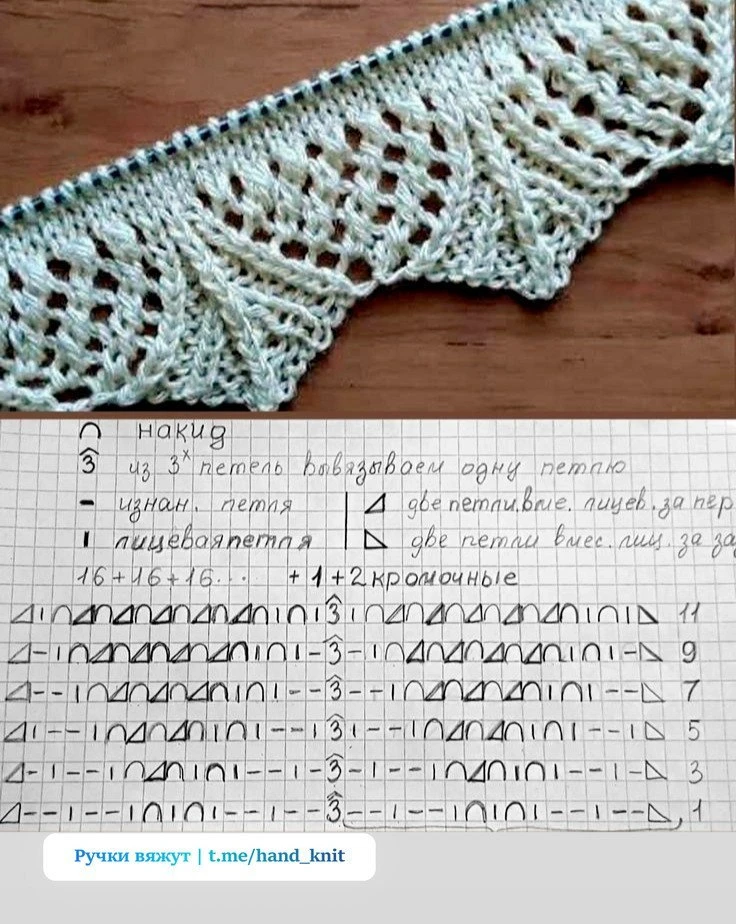 ∩ накид
3 из 3х петель вывязываем одну петлю
- изнан. петля
ı лицевая петля
две петли вме. лицев. за пер
две петли вмес. лиц. за за
16+16+16... +1+2 кромочные
3 11
3 9
3 7
3 5
3 3
3 1
Ручки вяжут | t.me/hand_knit